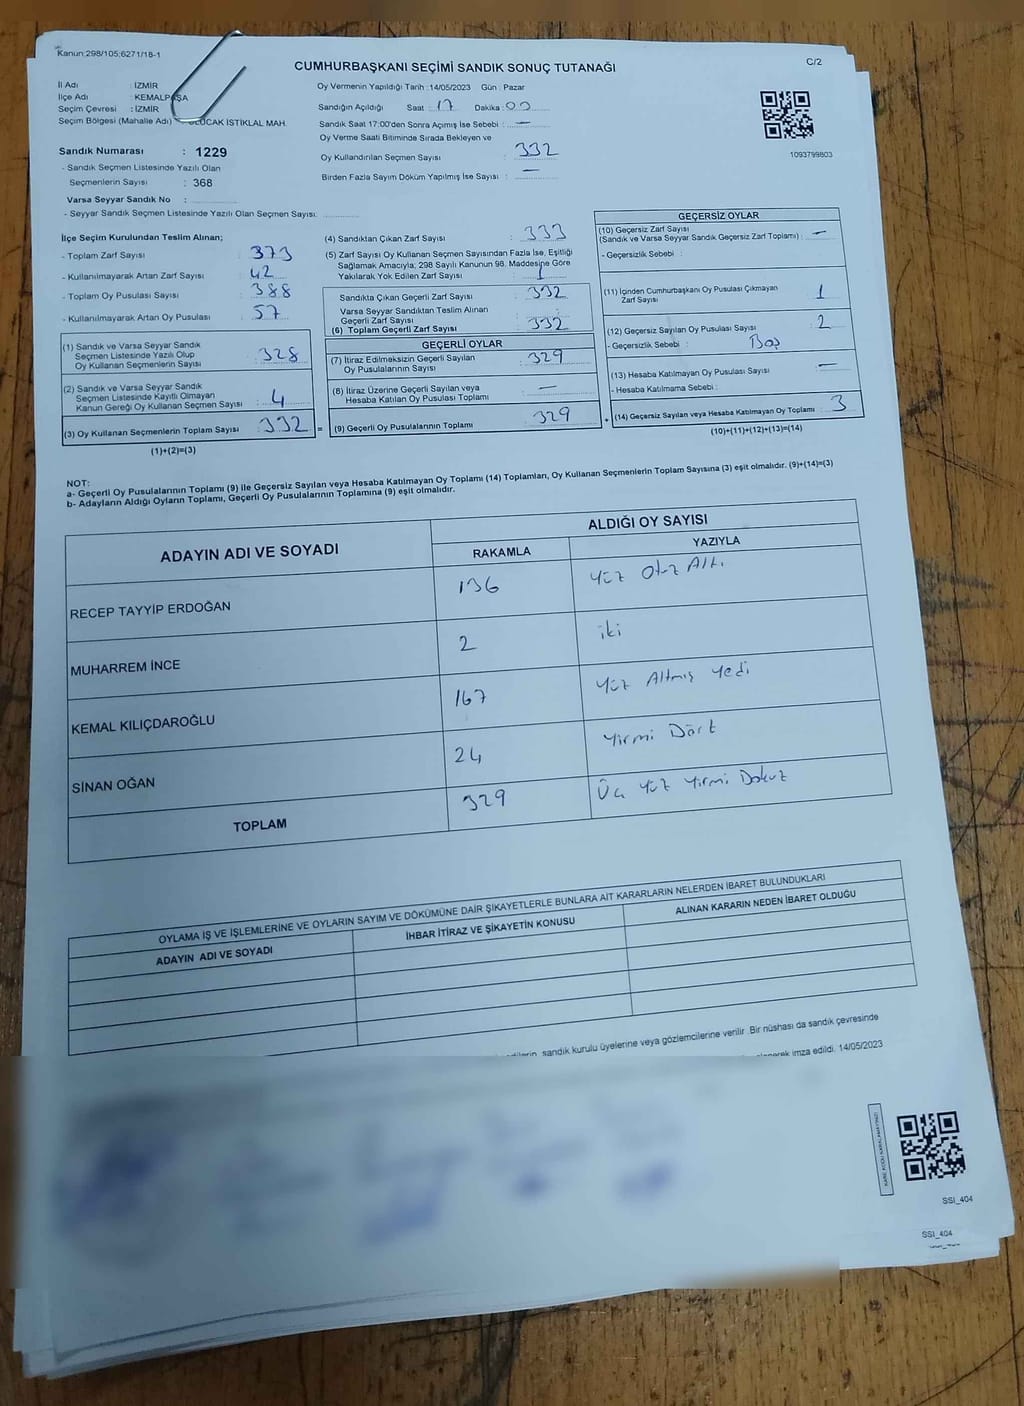 Kanun:298/105;6271/18-1
CUMHURBAŞKANI SEÇİMİ SANDIK SONUÇ TUTANAĞI
C/2
İl Adı : İZMİR
İlçe Adı : KEMALPAŞA
Seçim Çevresi : İZMİR
Seçim Bölgesi (Mahalle Adı) ULUCAK İSTİKLAL MAH.
Sandık Numarası : 1229
- Sandık Seçmen Listesinde Yazılı Olan
Seçmenlerin Sayısı : 368
Varsa Seyyar Sandık No :
- Seyyar Sandık Seçmen Listesinde Yazılı Olan Seçmen Sayısı:
Oy Vermenin Yapıldığı Tarih :14/05/2023 Gün : Pazar
Sandığın Açıldığı Saat : 17 Dakika : 00
Sandık Saat 17:00'den Sonra Açımış İse Sebebi : —
Oy Verme Saati Bitiminde Sırada Bekleyen ve
Oy Kullandırılan Seçmen Sayısı : 332
Birden Fazla Sayım Döküm Yapılmış İse Sayısı : —
1093799803
İlçe Seçim Kurulundan Teslim Alınan;
- Toplam Zarf Sayısı : 373
- Kullanılmayarak Artan Zarf Sayısı : 42
- Toplam Oy Pusulası Sayısı : 388
- Kullanılmayarak Artan Oy Pusulası : 57
(1) Sandık ve Varsa Seyyar Sandık
Seçmen Listesinde Yazılı Olup
Oy Kullanan Seçmenlerin Sayısı : 328
(2) Sandık ve Varsa Seyyar Sandık
Seçmen Listesinde Kayıtlı Olmayan
Kanun Gereği Oy Kullanan Seçmen Sayısı : 4
(3) Oy Kullanan Seçmenlerin Toplam Sayısı : 332 =
(1)+(2)=(3)
(4) Sandıktan Çıkan Zarf Sayısı : 333
(5) Zarf Sayısı Oy Kullanan Seçmen Sayısından Fazla İse, Eşitliği
Sağlamak Amacıyla; 298 Sayılı Kanunun 98. Maddesine Göre
Yakılarak Yok Edilen Zarf Sayısı : 1
Sandıkta Çıkan Geçerli Zarf Sayısı : 332
Varsa Seyyar Sandıktan Teslim Alınan
Geçerli Zarf Sayısı :
(6) Toplam Geçerli Zarf Sayısı : 332
GEÇERLİ OYLAR
(7) İtiraz Edilmeksizin Geçerli Sayılan
Oy Pusulalarının Sayısı : 329
(8) İtiraz Üzerine Geçerli Sayılan veya
Hesaba Katılan Oy Pusulası Toplamı : —
(9) Geçerli Oy Pusulalarının Toplamı : 329 +
GEÇERSİZ OYLAR
(10) Geçersiz Zarf Sayısı
(Sandık ve Varsa Seyyar Sandık Geçersiz Zarf Toplamı) : —
- Geçersizlik Sebebi :
(11) İçinden Cumhurbaşkanı Oy Pusulası Çıkmayan
Zarf Sayısı : 1
(12) Geçersiz Sayılan Oy Pusulası Sayısı : 2
- Geçersizlik Sebebi : Boş
(13) Hesaba Katılmayan Oy Pusulası Sayısı : —
- Hesaba Katılmama Sebebi :
(14) Geçersiz Sayılan veya Hesaba Katılmayan Oy Toplamı : 3
(10)+(11)+(12)+(13)=(14)
NOT:
a- Geçerli Oy Pusulalarının Toplamı (9) ile Geçersiz Sayılan veya Hesaba Katılmayan Oy Toplamı (14) Toplamları, Oy Kullanan Seçmenlerin Toplam Sayısına (3) eşit olmalıdır. (9)+(14)=(3)
b- Adayların Aldığı Oyların Toplamı, Geçerli Oy Pusulalarının Toplamına (9) eşit olmalıdır.
ADAYIN ADI VE SOYADI
ALDIĞI OY SAYISI
RAKAMLA YAZIYLA
RECEP TAYYİP ERDOĞAN 136 Yüz Otuz Altı
MUHARREM İNCE 2 iki
KEMAL KILIÇDAROĞLU 167 Yüz Altmış Yedi
SİNAN OĞAN 24 Yirmi Dört
TOPLAM 329 Üç Yüz Yirmi Dokuz
OYLAMA İŞ VE İŞLEMLERİNE VE OYLARIN SAYIM VE DÖKÜMÜNE DAİR ŞİKAYETLERLE BUNLARA AİT KARARLARIN NELERDEN İBARET BULUNDUKLARI
ADAYIN ADI VE SOYADI İHBAR İTİRAZ VE ŞİKAYETİN KONUSU ALINAN KARARIN NEDEN İBARET OLDUĞU
sandık kurulu üyelerine veya gözlemcilerine verilir .Bir nüshası da sandık çevresinde
imza edildi. 14/05/2023
KARE KODU KARALAMAYINIZ!
SSI_404
SSI_404